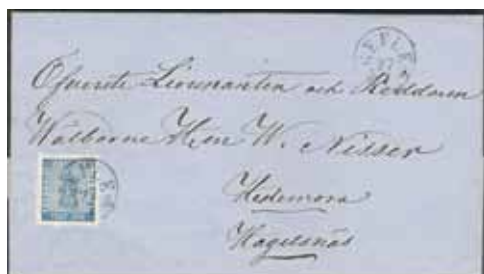 GEFLE
27
Öfverste Lieutnanten och Riddaren
Wälborne Herr W. Nisser
Hedemora
Hagelsnäs